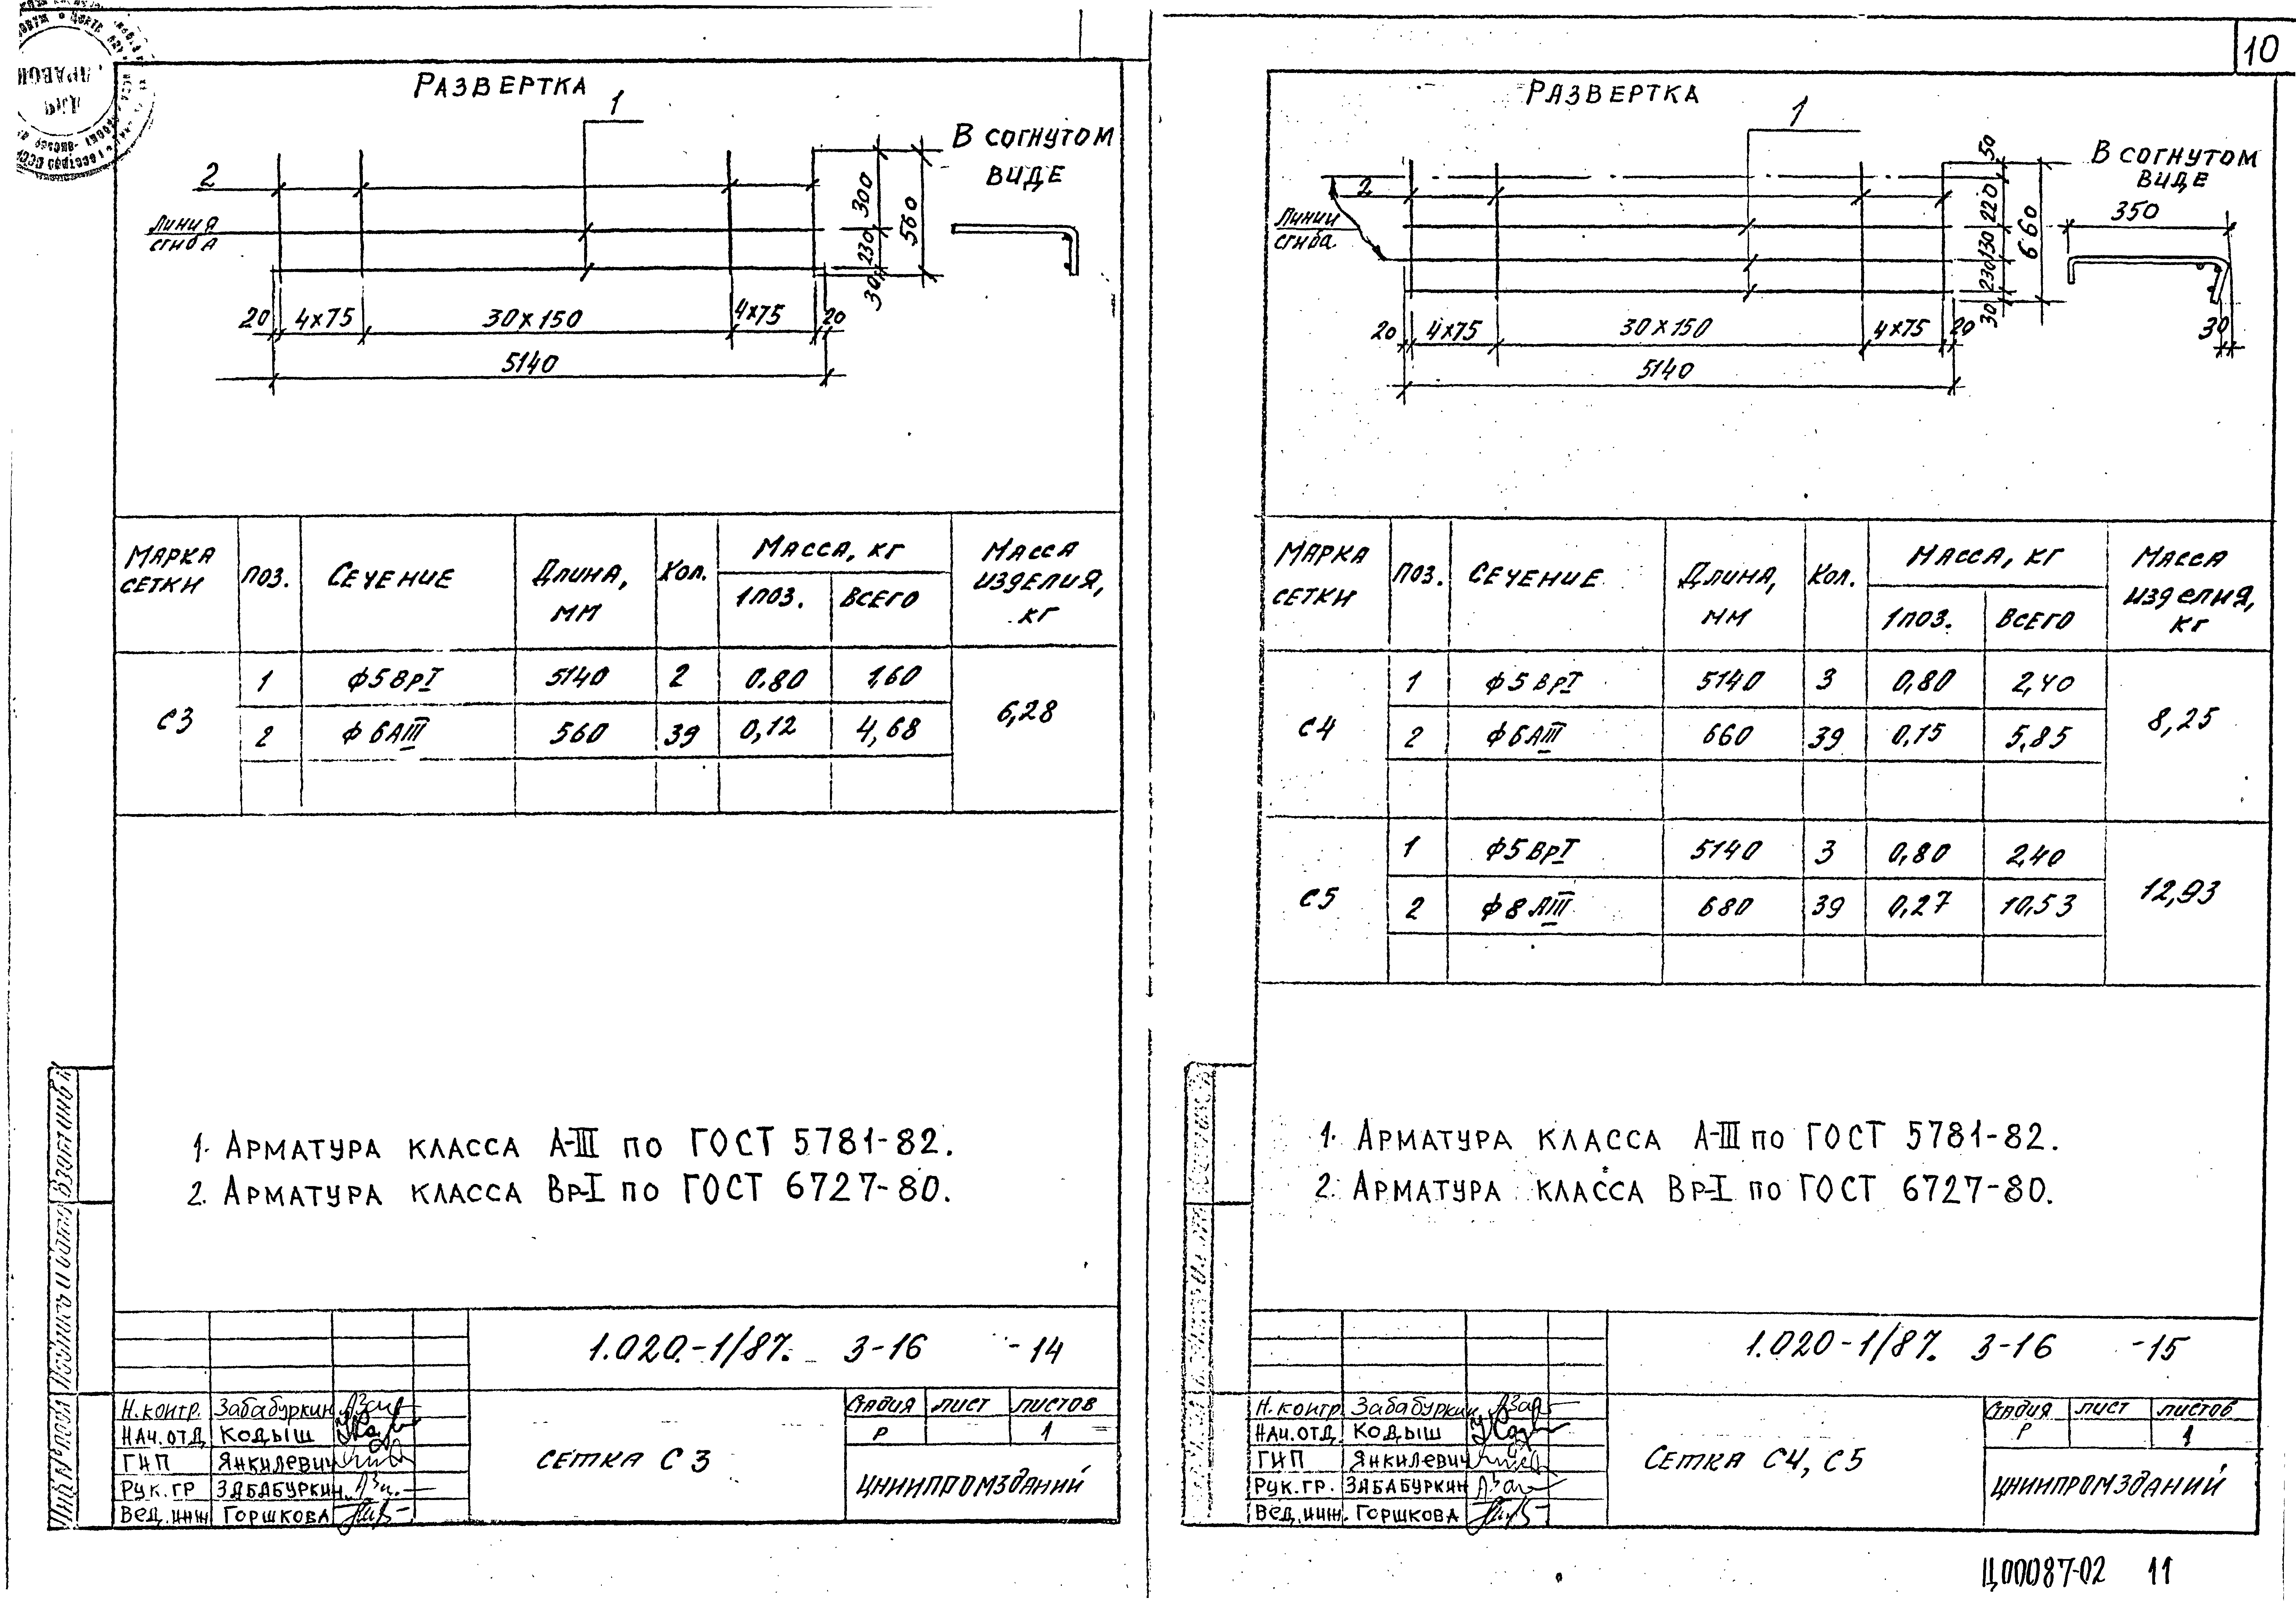 РАЗВЕРТКА
1
2
ЛИНИЯ СГИБА
В СОГНУТОМ ВИДЕ
300
230
30
560
20 4×75 30×150 4×75 20
5140
МАРКА СЕТКИ ПОЗ. СЕЧЕНИЕ ДЛИНА, ММ КОЛ. МАССА, КГ МАССА ИЗДЕЛИЯ, КГ
1ПОЗ. ВСЕГО
С3 1 ϕ5ВрI 5140 2 0.80 1,60 6,28
2 ϕ6АIII 560 39 0,12 4,68
1. АРМАТУРА КЛАССА А-III ПО ГОСТ 5781-82.
2. АРМАТУРА КЛАССА Вр-I ПО ГОСТ 6727-80.
1.020.-1/87. 3-16 -14
Н.контр. Забабуркин
НАЧ.ОТД КОДЫШ
ГИП ЯНКИЛЕВИЧ
РУК.ГР ЗАБАБУРКИН
ВЕД.ИНЖ ГОРШКОВА
СЕТКА С3
Стадия лист листов
Р 1
ЦНИИПРОМЗДАНИЙ
10
РАЗВЕРТКА
1
2
ЛИНИИ СГИБА
В СОГНУТОМ ВИДЕ
350
30
50
220
130
230
30
660
20 4×75 30×150 4×75 20
5140
МАРКА СЕТКИ ПОЗ. СЕЧЕНИЕ ДЛИНА, ММ КОЛ. МАССА, КГ МАССА ИЗДЕЛИЯ, КГ
1ПОЗ. ВСЕГО
С4 1 ϕ5ВрI 5140 3 0,80 2,40 8,25
2 ϕ6АIII 660 39 0,15 5,85
С5 1 ϕ5ВрI 5140 3 0,80 2,40 12,93
2 ϕ8АIII 680 39 0,27 10,53
1. АРМАТУРА КЛАССА А-III ПО ГОСТ 5781-82.
2. АРМАТУРА КЛАССА Вр-I ПО ГОСТ 6727-80.
1.020-1/87. 3-16 -15
Н.контр Забабуркин
НАЧ.ОТД. КОДЫШ
ГИП ЯНКИЛЕВИЧ
РУК.ГР. ЗАБАБУРКИН
ВЕД.ИНЖ. ГОРШКОВА
СЕТКА С4, С5
Стадия лист листов
Р 1
ЦНИИПРОМЗДАНИЙ
Ц00087-02 11